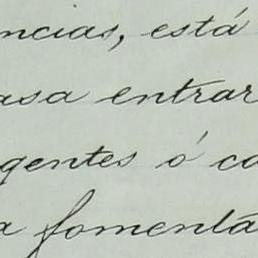 ncias, está
asa entrar
gentes ó co
a fomenta